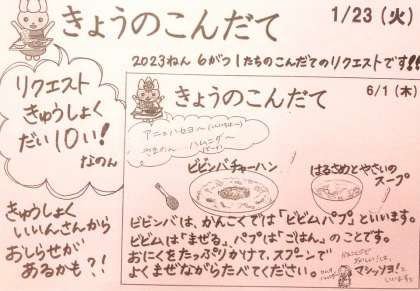 きょうのこんだて
1/23 (火)
2023ねん 6がつ 1たちのこんだてのリクエストです!!
リクエスト
きゅうしょく
だい10い!
なのん
きゅうしょく
いいんさんから
おしらせが
あるかも?!
きょうのこんだて
6/1 (木)
アニョハセヨ〜
ビビンバチャーハン
はるさめとやさいの
スープ
ビビンバは、かんこくでは「ビビムパプ」といいます。
ビビムは「まぜる」、パプは「ごはん」のことです。
おにくをたっぷりかけて、スプーンで
よくまぜながらたべてください。
かんこくで
おいしい!は、
マシッソヨ!と
いいます。